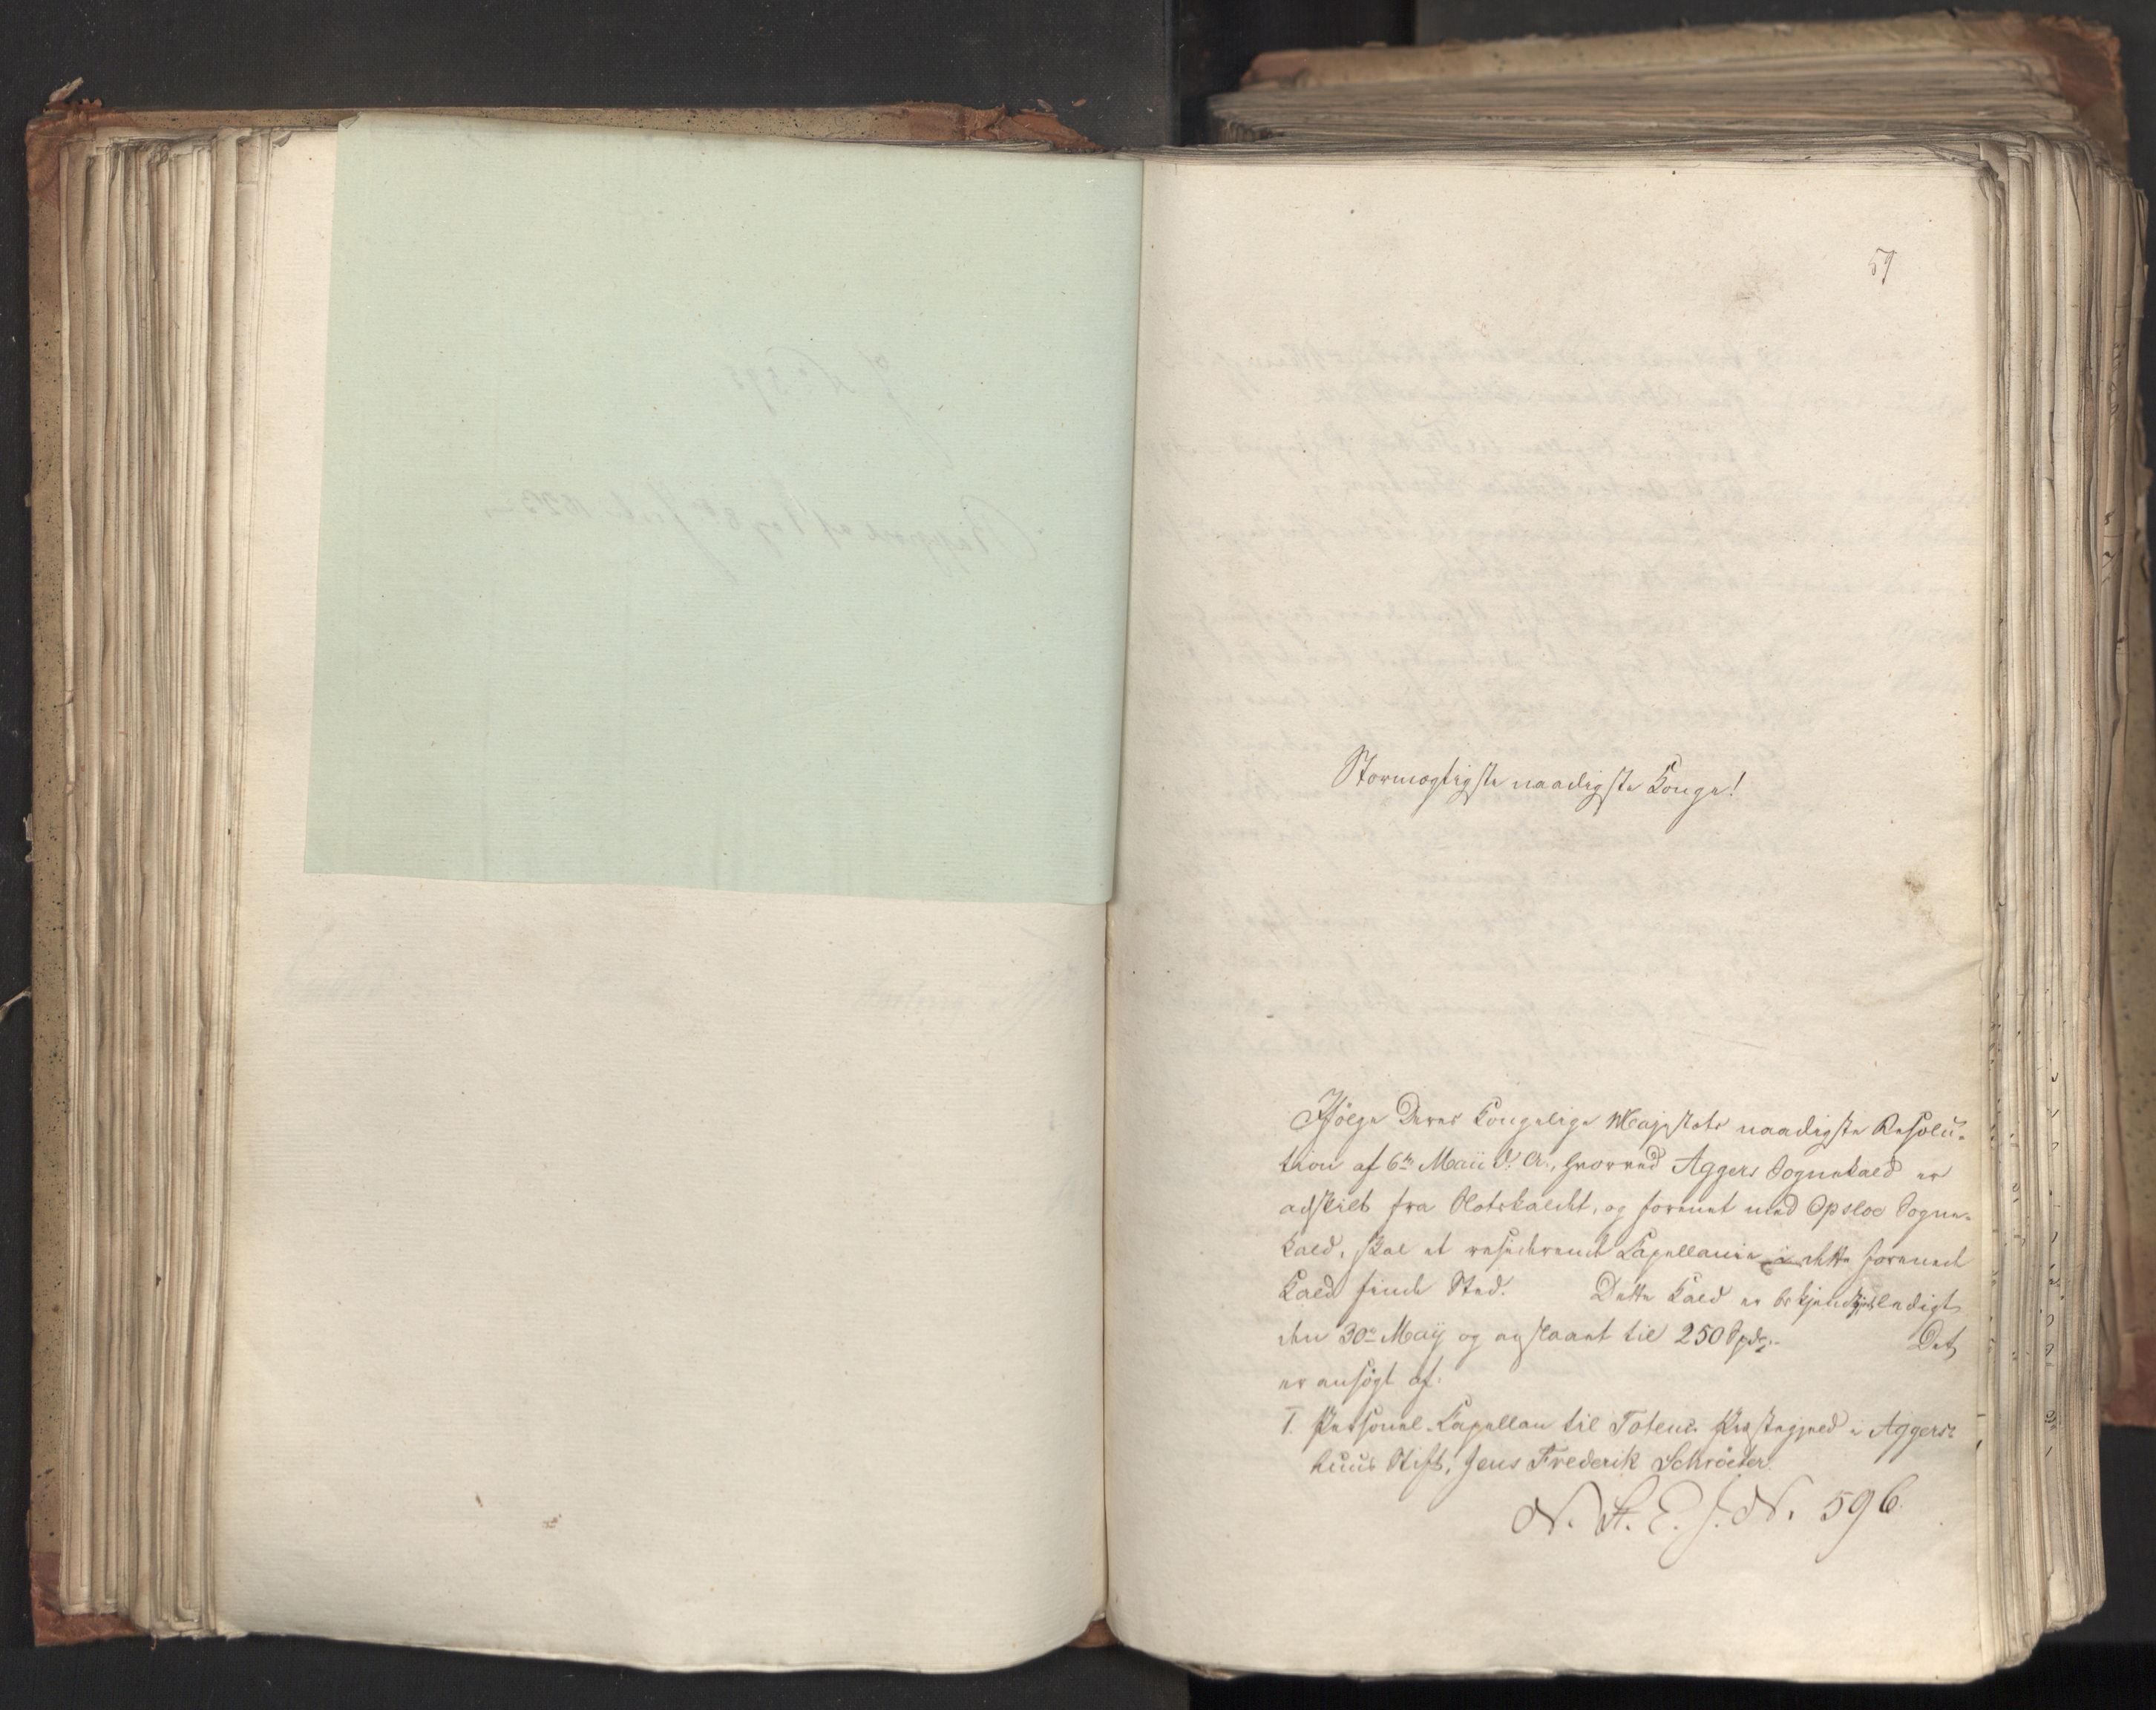 59
Stormægtigste naadigste Konge!
Ifølge Deres Kongelige Majestæts naadigste Resolu-
tion af 6te Maii d. A., hvorved Aggers Sognekald er
adskilt fra Slotskaldet, og forenet med Opsloe Sogne-
kald, skal et residerende Capellanie i dette forenede
Kald finde Sted. Dette Kald er bekjendtgjort ledigt
den 30te Maij og anslaaet til 250 Spd. Det
er ansøgt af:
1. Personel-Capellan til Totens Præstegjeld i Aggers-
huus Stift, Jens Frederik Schröeter.
N. St. E. J. N. 596.